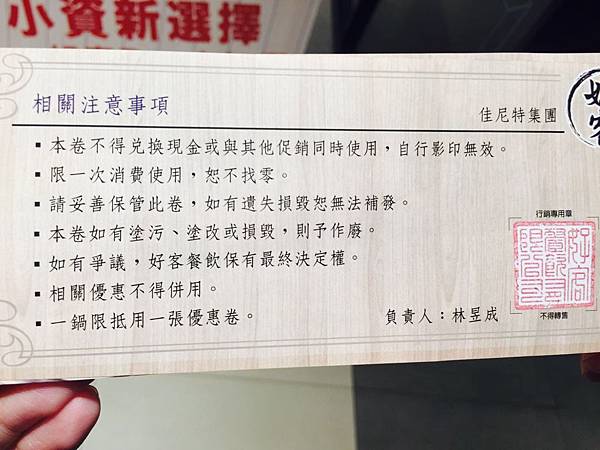 小資新選擇
相關注意事項
佳尼特集團
好客
▪ 本卷不得兌換現金或與其他促銷同時使用，自行影印無效。
▪ 限一次消費使用，恕不找零。
▪ 請妥善保管此卷，如有遺失損毀恕無法補發。
▪ 本卷如有塗污、塗改或損毀，則予作廢。
▪ 如有爭議，好客餐飲保有最終決定權。
▪ 相關優惠不得併用。
▪ 一鍋限抵用一張優惠卷。
負責人：林昱成
行銷專用章
不得轉售